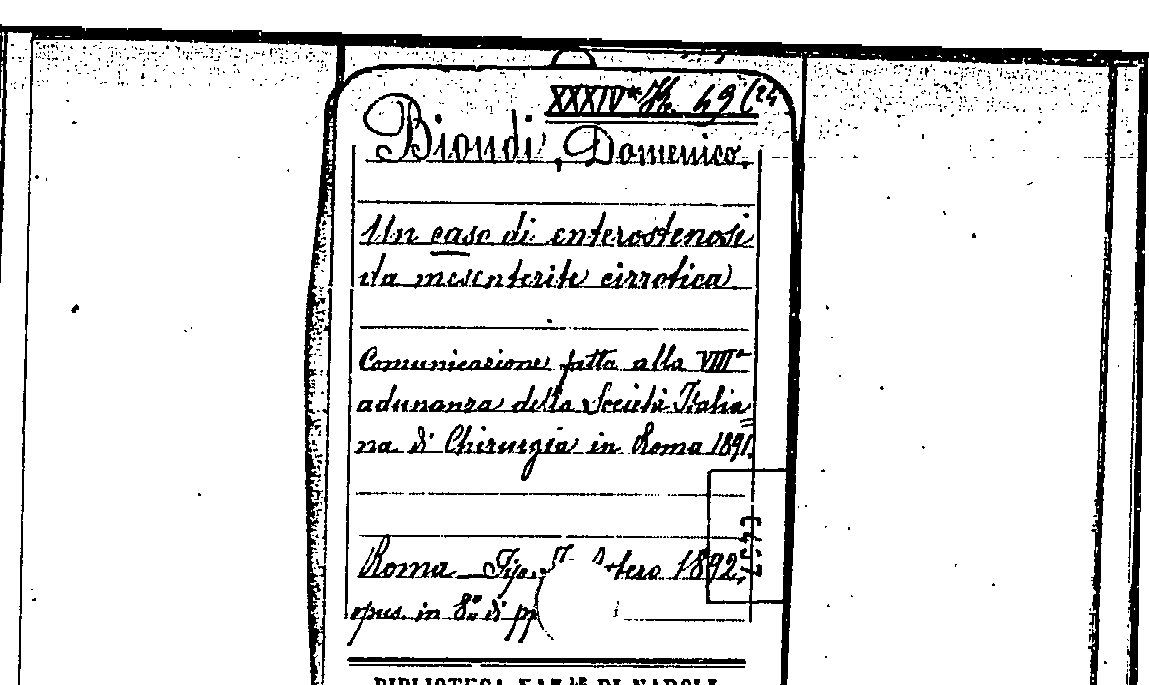 XXXIV 49 (24
Biondi, Domenico.
Un caso di enterostenosi
da mesenterite cirrotica
Comunicazione fatta alla VIIIa
adunanza della Società Italia
na di Chirurgia in Roma 1891.
Roma Tip. 1892.
opus. in 8.° di pp
BIBLIOTECA NAZ.LE DI NAPOLI